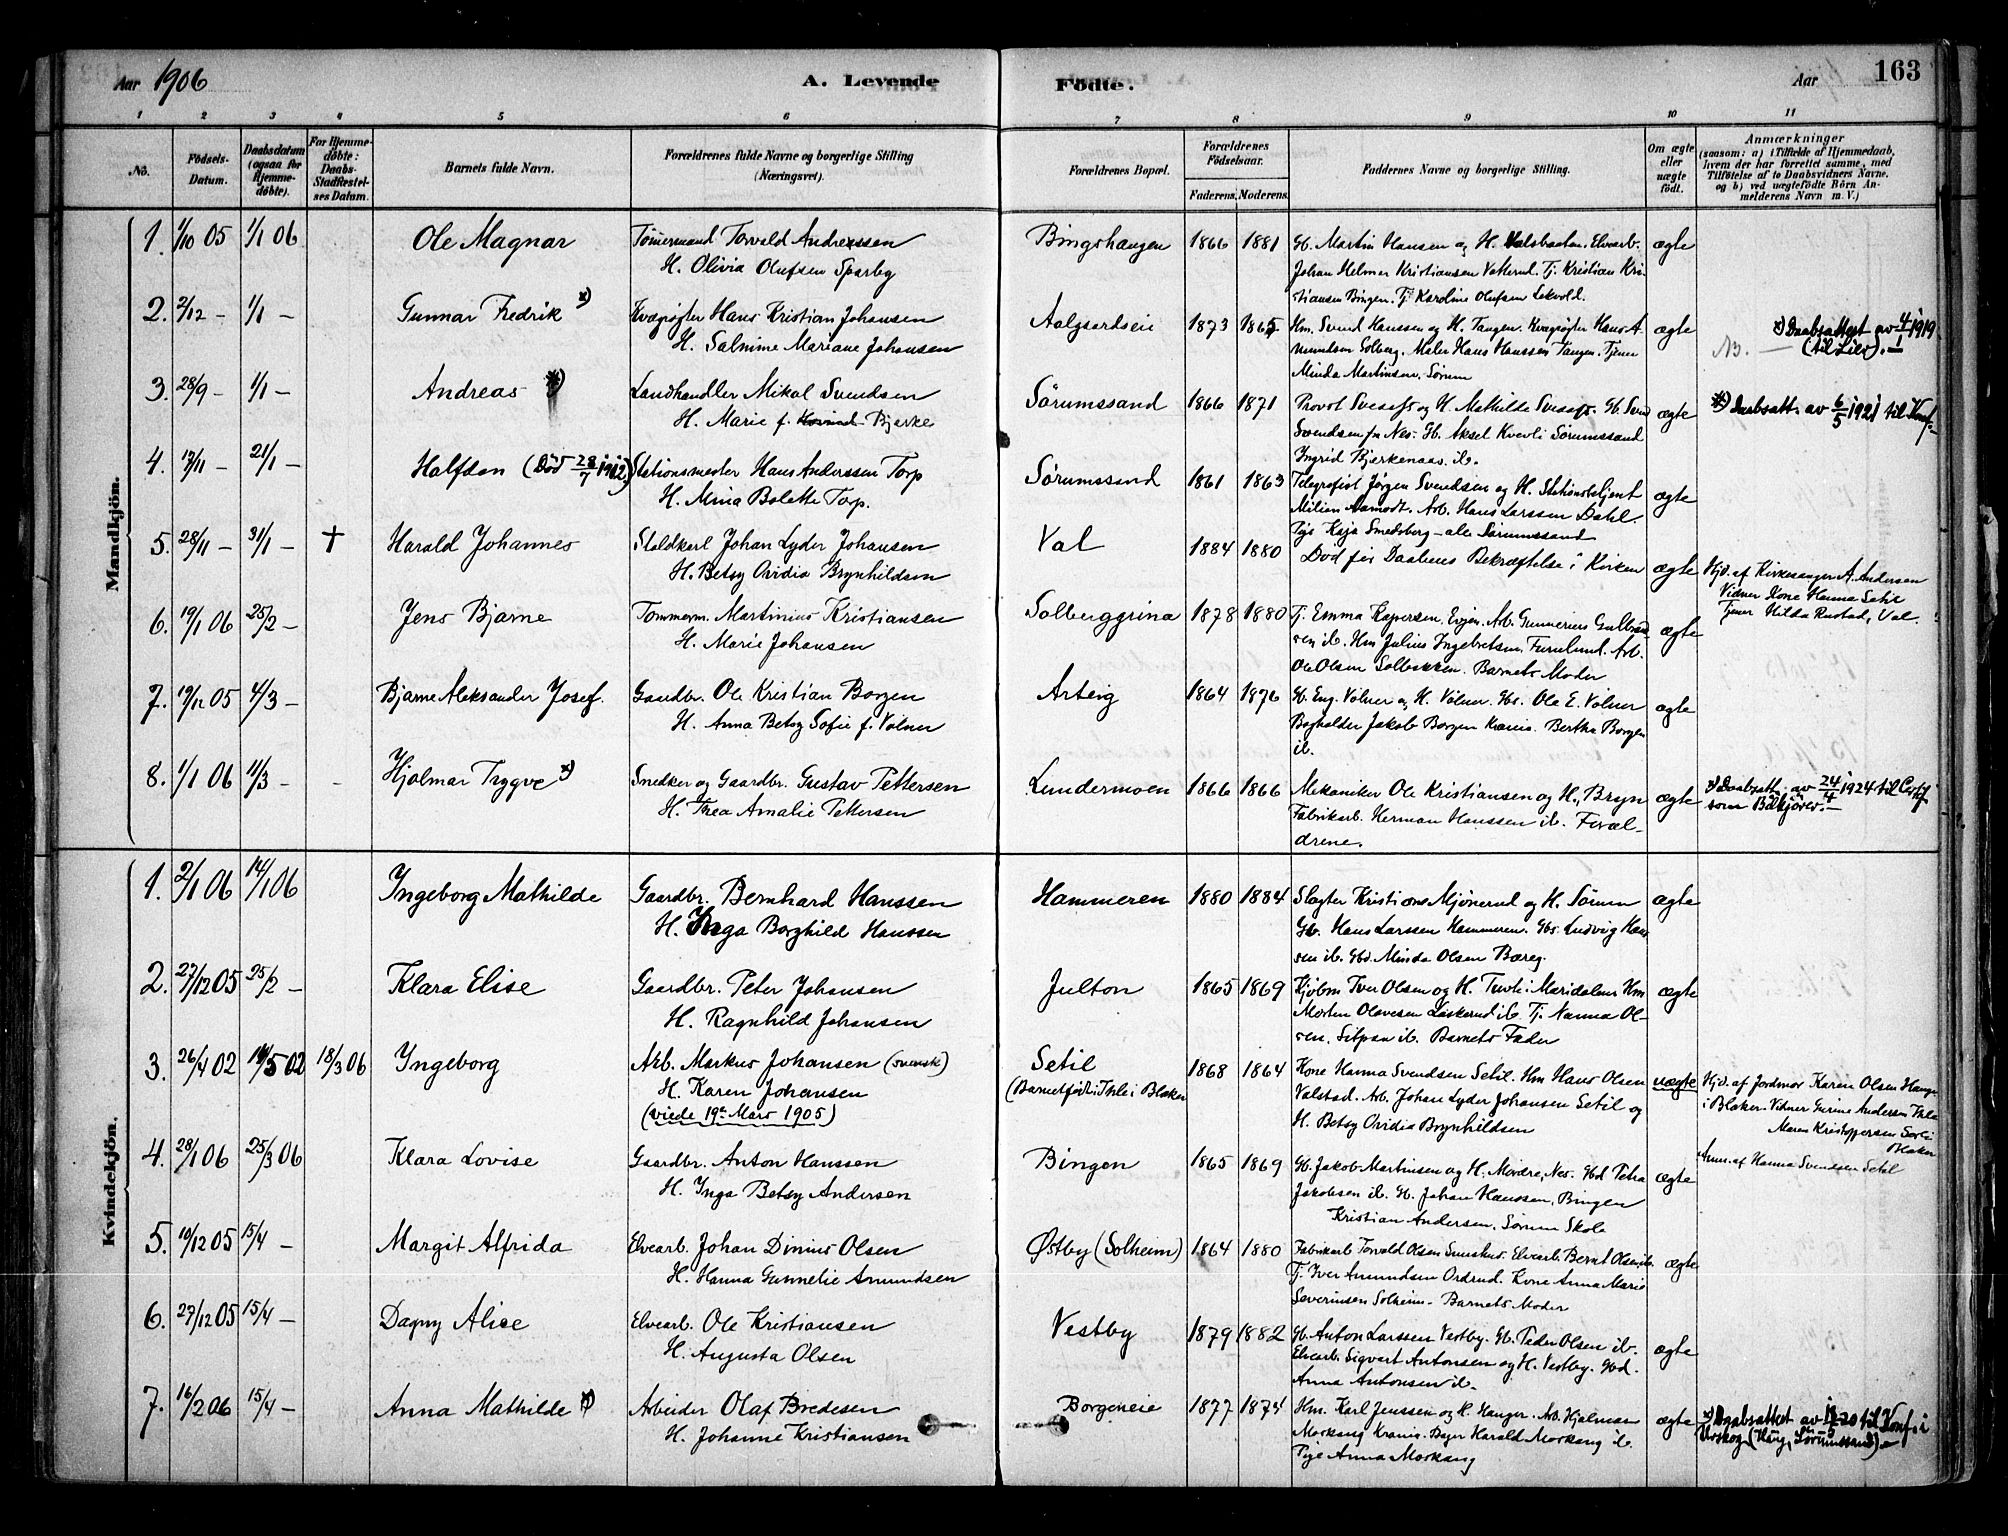 Aar 1906
A. Levende
Fødte.
Aar
163
1 2 3 4 5 6 7 8 9 10 11
No.
Fødsels-Datum.
Daabsdatum (ogsaa for Hjemme-døbte).
For Hjemme-døbte: Daabs-Stadfæstel-ses Datum.
Barnets fulde Navn.
Forældrenes fulde Navne og borgerlige Stilling (Næringsvei).
Forældrenes Bopæl.
Forældrenes Fødselsaar.
Faderens. Moderens.
Faddernes Navne og borgerlige Stilling.
Om ægte eller uægte født.
Anmærkninger
(saasom: a) i Tilfælde af Hjemmedaab, hvem der har forrettet samme, med Tilføielse af to Daabsvidners Navne, og b) ved uægtefødte Børn Anmelderens Navn m. V.)
Mandkjön.
1. 1/10 05 1/1 06 Ole Magnar
Tømmermand Torvald Anderssen
H. Olivia Olufsen Sparby
Bingshaugen 1866 1881
Gb. Martin Hansen og H. Valsbraaten. Elvearb.
Johan Helmer Kristiansen Vatterud. Tj. Kristian Kri-
stiansen Bingen. Tj. Karoline Olufsen Lekvold.
ægte
2. 2/12 – 1/1 – Gunnar Fredrik *)
Kvægrøgter Hans Kristian Johansen
H. Salmine Mariane Johansen
Aalgaardseie 1873 1865
Hm. Svend Hanssen og H. Tangen. Kvægrøgter Hans A-
mundsen Solberg. Maler Hans Hanssen Tangen. Tjener
Minda Martinsen, Sørum
ægte
*) Daabsattest av 4/1 1919
(til Liv).
3. 28/9 – 1/1 – Andreas *)
Landhandler Mikal Svendsen
H. Marie f. Bjerke
Sørumssand 1866 1871
Svendsen fra Nes. Gb. Aksel Kverli Sørumssand
Ingrid Bjerkenaas ib.
ægte
*) Daabsatt. av 6/5 1921 til Konf.
4. 17/11 – 21/1 – Halfdan (Død 28/7 1912)
Stationsmester Hans Anderssen Torp
H. Mina Bolette Torp.
Sørumssand 1861 1863
Telegrafist Jørgen Svendsen og H. Stationsbetjent
Milian Aamodt. Arb. Hans Larssen Dahl.
Pige Kaja Smedsberg – alle Sørumssand
ægte
5. 28/11 – 31/1 – † Harald Johannes
Staldkarl Johan Lyder Johansen
H. Betsy Ovidia Brynhildsen
Val 1884 1880
Død før Daabens Bekræftelse i Kirken
ægte
Hjd. af Kirkesanger A. Andersen
Vidner Kone Hanna Setil
Tjener Hilda Rustad, Val.
6. 19/1 06 25/2 – Jens Bjarne
Tømmerm. Martinius Kristiansen
H. Marie Johansen
Solberggrina 1878 1880
Tj. Emma Kaspersen, Evjen. Arb. Gunnerius Gulbrand-
sen ib. Hm Julius Ingebretsen Furulund. Arb.
Ole Olsen Solbakken. Barnets Moder
ægte
7. 19/12 05 4/3 – Bjarne Aleksander Josef.
Gaardbr. Ole Kristian Borgen
H. Anna Betsy Sofie f. Valner
Arteig 1864 1876
Bogholder Jakob Borgen Krania. Bertha Borgen
ib.
ægte
8. 1/1 06 11/3 – – Hjalmar Trygve *)
Snedker og Gaardbr. Gustav Pettersen
H. Thea Amalie Pettersen
Lundermoen 1866 1866
Mekaniker Ole Kristiansen og H., Bryn
Fabrikarb. Herman Hanssen ib. Foræl-
drene.
ægte
*) Daabsatt. av 24/4 1924 til Certif.
som Bilkjører.
Kvindekjön.
1. 2/1 06 14/1 06 Ingeborg Mathilde
Gaardbr. Bernhard Hanssen
H. Inga Borghild Hanssen
Hammeren 1880 1884
Slagter Kristian Mjønerud og H. Sørum
Gb. Hans Larssen Hammeren. Gbs. Ludvig Han-
sen ib. Gbd. Minda Olsen Bæreg.
ægte
2. 27/12 05 25/2 – Klara Elise
Gaardbr. Peter Johansen
H. Ragnhild Johansen
Julton 1865 1869
Kjøbm Iver Olsen og H. Maridalen Hm
Morten Olavesen ib. Tj. Nanna Ol-
sen, ib. Barnets Fader
ægte
3. 26/4 02 19/5 02 18/3 06 Ingeborg
Arb. Markus Johansen (svensk)
H. Karen Johansen
(viede 19de Mars 1905)
Setil
(Barnet født i Thle i Blaker
1868 1864
Kone Hanna Svendsen Setil. Hm Hans Olsen
Valstad. Arb. Johan Lyder Johansen Setil og
H. Betsy Ovidia Brynhildsen
uægte
Hjd. af Jordmor Karen Olsen Hauge
i Blaker. Vidner Gurine Andersen
Maren Kristoffersen
Blaker
Anm. af Hanna Svendsen Setil
4. 28/1 06 25/3 06 Klara Lovise
Gaardbr. Anton Hanssen
H. Inga Betsy Andersen
Bingen 1865 1869
Gb. Jakob Martinsen og H. Mordre, Nes. Gbd Petra
Jakobsen ib. Gb. Johan Hanssen, Bingen
Kristian Andersen, Sørum Skole
ægte
5. 10/12 05 15/4 – Margit Alfrida
Elvearb. Johan Dinius Olsen
H. Hanna Gunnelie Amundsen
Østby (Solheim) 1864 1880
Fabrikarb Torvald Olsen Elvearb. Bernt Olsen ib.
Tj. Iver Amundsen Ordrud. Kone Anna Marie
Severinsen Solheim – Barnets Moder
ægte
6. 27/12 05 15/4 – Dagny Alice
Elvearb. Ole Kristiansen
H. Augusta Olsen
Vestby 1879 1882
Gb. Anton Larssen Vestby. Gb. Peder Olsen ib.
Elvearb. Sigvart Antonsen og H. Vestby. Gbd.
Anna Antonsen ib.
ægte
7. 16/2 06 15/4 – Anna Mathilde *)
Arbeider Olaf Bredesen
H. Johanne Kristiansen
Borgeneie 1877 1874
Hm. Karl Jenssen og H. Hanger. Arb. Hjalmar
Morkang Krania. Bager Harald Morkang ib.
Pige Anna Morkang
ægte
*) Daabsattest av 20 til Konf. i
Urskog (Haug, Sørumssand).